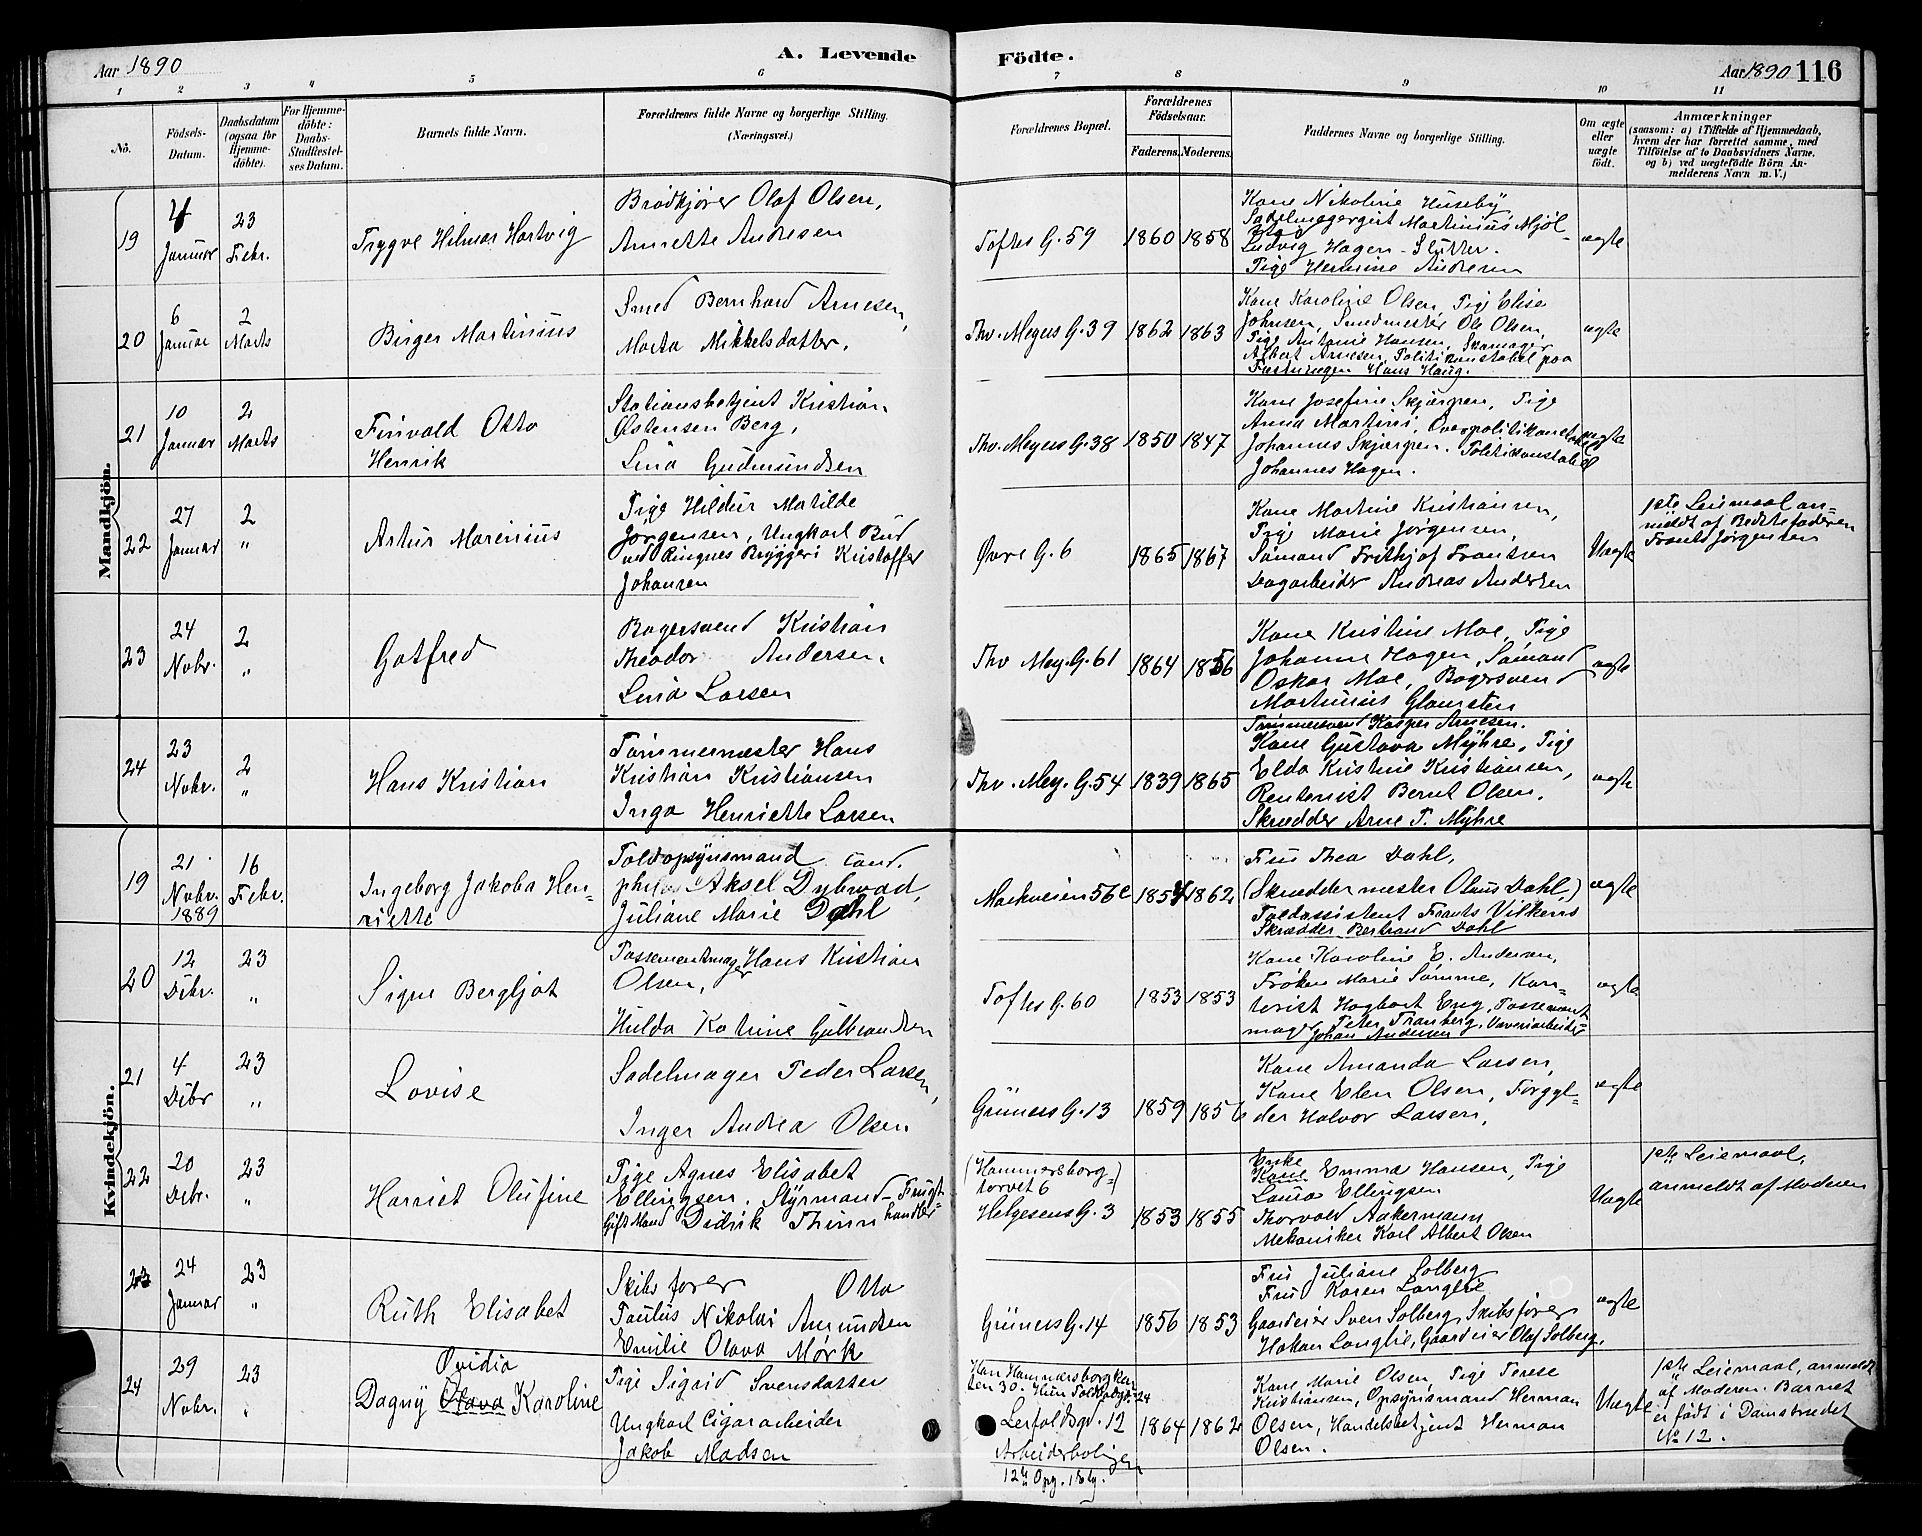 Aar 1890
A. Levende
Födte.
Aar 1890 116
1 2 3 4 5 6 7 8 9 10 11
No.
Födsels-Datum.
Daabsdatum (ogsaa for Hjemme-döbte).
For Hjemme-döbte: Daabs-Stadfæstel-ses Datum.
Barnets fulde Navn.
Forældrenes fulde Navne og borgerlige Stilling.
(Næringsvei.)
Forældrenes Bopæl.
Forældrenes Födselsaar.
Faderens. Moderens.
Faddernes Navne og borgerlige Stilling.
Om ægte eller uægte födt.
Anmærkninger
(saasom: a) i Tilfælde af Hjemmedaab,
hvem der har forrettet samme, med
Tilföielse af to Daabsvidners Navne,
og b) ved uægtefödte Börn An-
melderens Navn m. V.)
Mandkjön.
19
4 Januar
23 Febr.
Trygve Hilmar Hartvig
Brödkjörer Olaf Olsen,
Annette Andresen
Toftes G. 59
1860 1858
Kone Nikoline Huseby
Sadelmagergut Martinius Mjöl-
Ludvig Hagen - Slutter.
Pige Hermine Andresen
ægte
20
6 Januar
2 Marts
Birger Martinius
Smed Bernhard Arnesen,
Marta Mikkelsdatter.
Thv. Meyers G. 39
1862 1863
Kone Karoline Olsen, Pige Elise
Johnsen, Smedmester Ole Olsen,
Pige Antonie Hansen, Skomager
Albert Arnesen, Politikonstabel paa
Fæstningen Hans Haug.
ægte
21
10 Januar
2 Marts
Finvald Otto
Henrik
Stationsbetjent Kristian
Østensen Berg,
Lina Gudmundsen
Thv. Meyers G. 38
1850 1847
Kone Josefine Skjörpen, Pige
Anna Martini, Overpolitikonstabel
Johannes Skjörpen. Politikonstabel
Johannes Hagen.
ægte
22
27 Januar
2 "
Artur Marinius
Pige Hildur Matilde
Jörgensen, Ungkarl Bud
ved Ringnes Bryggeri Kristoffer
Johansen
Øvre G. 6
1865 1867
Kone Martine Kristiansen,
Pige Marie Jörgensen,
Sömand Frithjof Frantsen
Dagarbeider Andreas Andersen
Uægte
1ste Leiemaal an-
meldt af Bedstefaderen
Frants Jörgensen
23
24 Nvbr.
2 "
Gotfred
Bagersvend Kristian
Theodor Andersen,
Lina Larsen
Thv Mey. G. 61
1864 1856
Kone Kristine Moe, Pige
Johanne Hagen, Sömand
Oskar Moe, Bagersvend
Martinius Glomsten
ægte
24
23 Nvbr.
2 "
Hans Kristian
Tömmermester Hans
Kristian Kristiansen
Inga Henriette Larsen
Thv. Mey. G. 54
1839 1865
Tömmersvend Kasper Arnesen.
Kone Gustava Myhre, Pige
Elda Kristine Kristiansen,
Rentenist Bernt Olsen,
Skrædder Arne P. Myhre
ægte
Kvindekjön.
19
21 Nvbr. 1889
16 Febr.
Ingeborg Jakoba Hen-
riette
Toldopsynsmand cand.
philos Aksel Dybwad,
Juliane Marie Dahl
Markveien 56c
1854 1862
Fru Thea Dahl,
(Skræddermester Olaus Dahl,)
Toldassistent Frants Vilkens
Skrædder Bertrand Dahl
ægte
20
12 Dcbr.
23 "
Signe Bergljot
Possementmager Hans Kristian
Olsen,
Hulda Katrine Gulbrandsen
Toftes G. 60
1853 1853
Kone Karoline E. Andersen,
Fröken Marie Sömme, Kon-
torist Hagbart Eng, Possement
mager Peter Tranberg, Væveriarbeider
Johan Andersen
ægte
21
4 Dcbr
23 "
Lovise
Sadelmager Peder Larsen,
Inger Andrea Olsen
Grüners G. 13
1859 1856
Kone Amanda Larsen,
Kone Elen Olsen, Forgyl-
der Halvor Larsen,
ægte
22
20 Dcbr.
23 "
Harriet Olufine
Pige Agnes Elisabet
Ellingsen. Styrmand - Frugt-
Gift Mand Didrik Thinn handler
(Hammersborg-
torvet 6)
Helgesens G. 3
1853 1855
Enke
Kone Emma Hansen, Pige
Laura Ellingsen
Thorvald Aakermann
Mekaniker Karl Albert Olsen
Uægte
1ste Leiemaal,
anmeldt af Moderen
23
24 Januar
23 "
Ruth Elisabet
Skibsförer Otto
Paulus Nikolai Amundsen
Emilie Olava Mörk
Grüners G. 14
1856 1853
Fru Juliane Solberg
Frue Karen Langlie
Gaardeier Sven Solberg, Skibsförer
Hakon Langlie, Gaardeier Olaf Solberg.
ægte
24
29 Nvbr.
23 "
Ovidia
Dagny Olava Karoline
Pige Sigrid Svensdatter
Ungkarl Cigararbeider
Jakob Madsen
Han Hammersborgbak
ken 30. Hun Toldbodgt. 24
Lerfaldsgt. 12
Arbeiderboliger
12te Opg. 1 Etg.
1864 1862
Kone Marie Olsen, Pige Terese
Kristiansen, Opsynsmand Herman
Olsen, Handelsbetjent Herman
Olsen.
Uægte
1ste Leiemaal, anmeldt
af Moderen. Barnet
er født i Damstrædet
No 12.